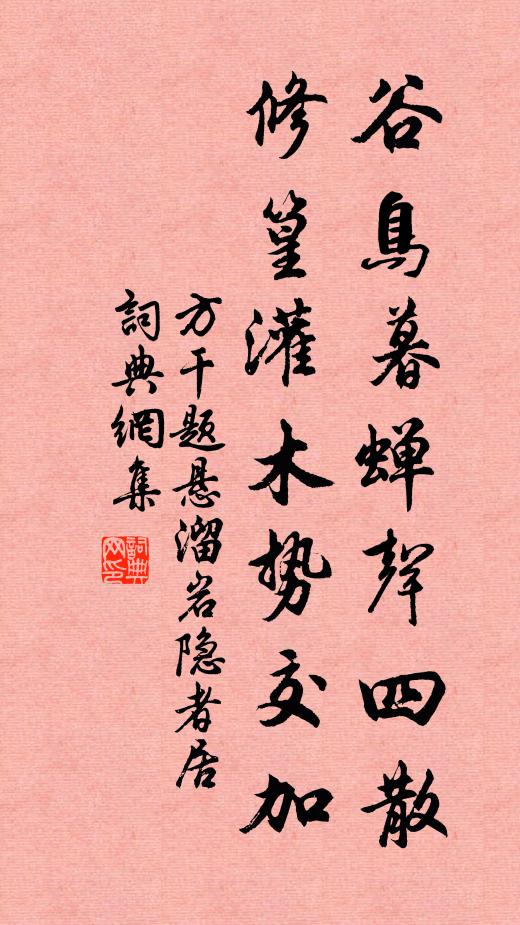 谷鳥暮蟬聲四散
修篁灌木勢交加
方干题悬溜岩隐者居
詞典網集
詞典网印